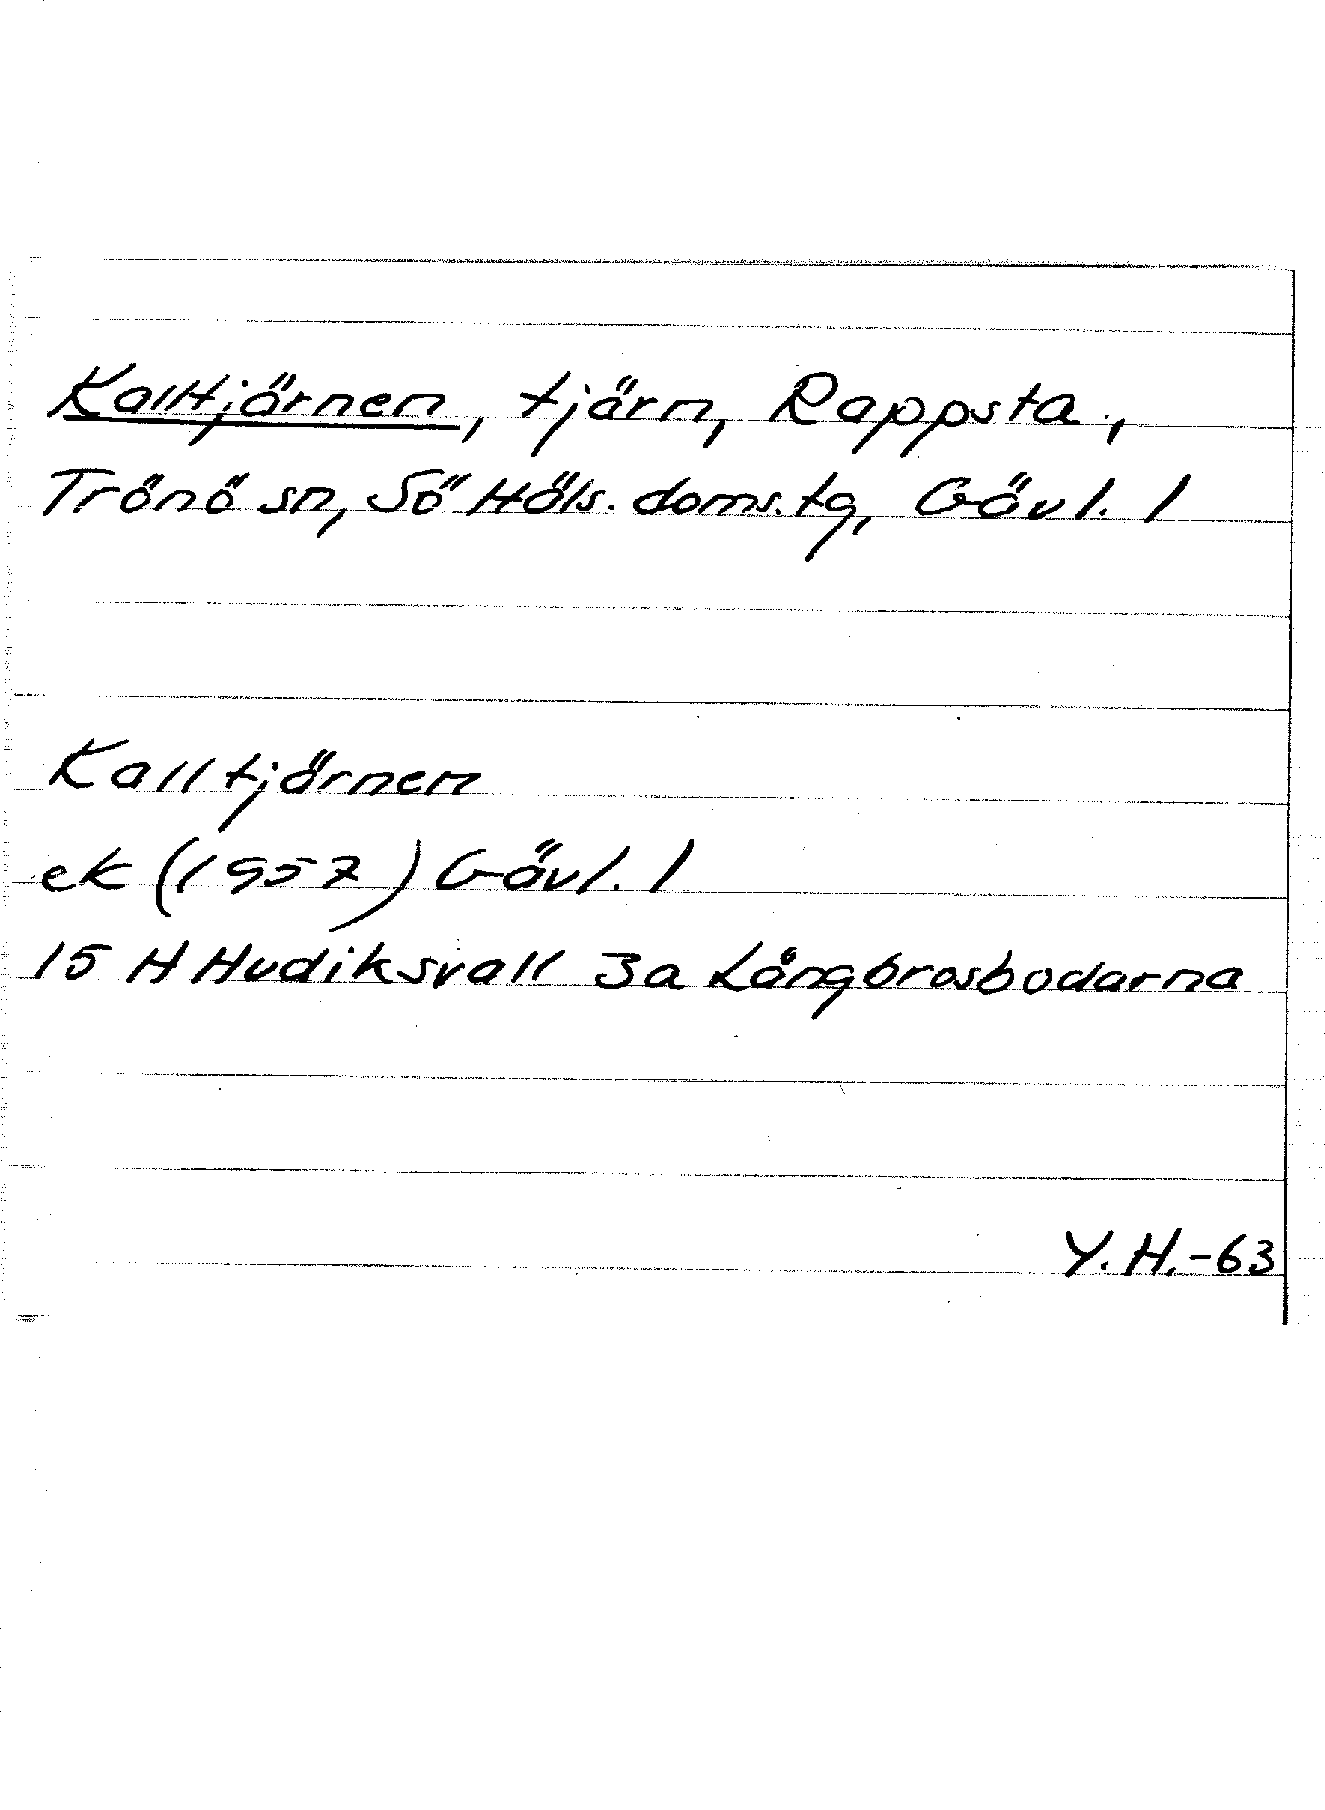 Kalltjärnen, tjärn, Rappsta,
Trönö sn, Sö Häls. doms. tg, Gävl. l
Kalltjärnen
ek (1957) Gävl. l
15 H Hudiksvall 3a Långbrosbodarna
Y. H. -63